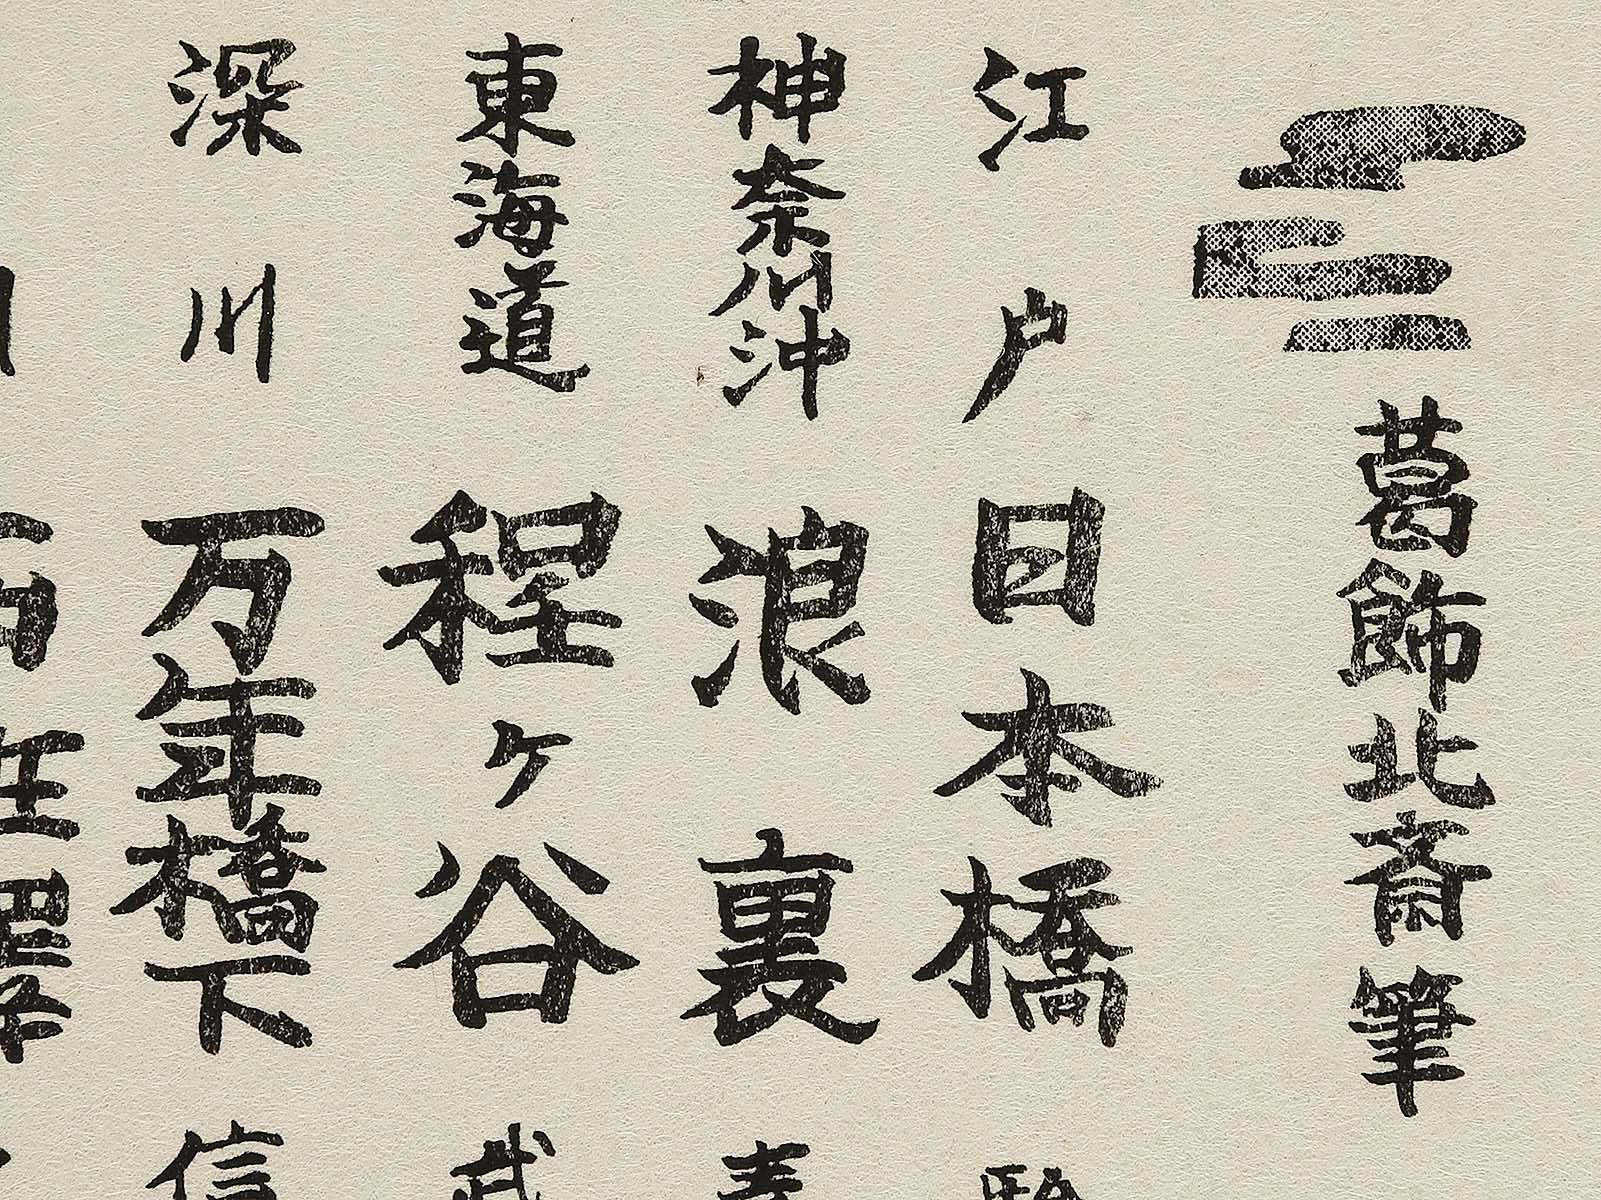 葛飾北斎筆
江戸 日本橋
神奈川沖 浪裏
東海道 程ヶ谷
深川 万年橋下 信